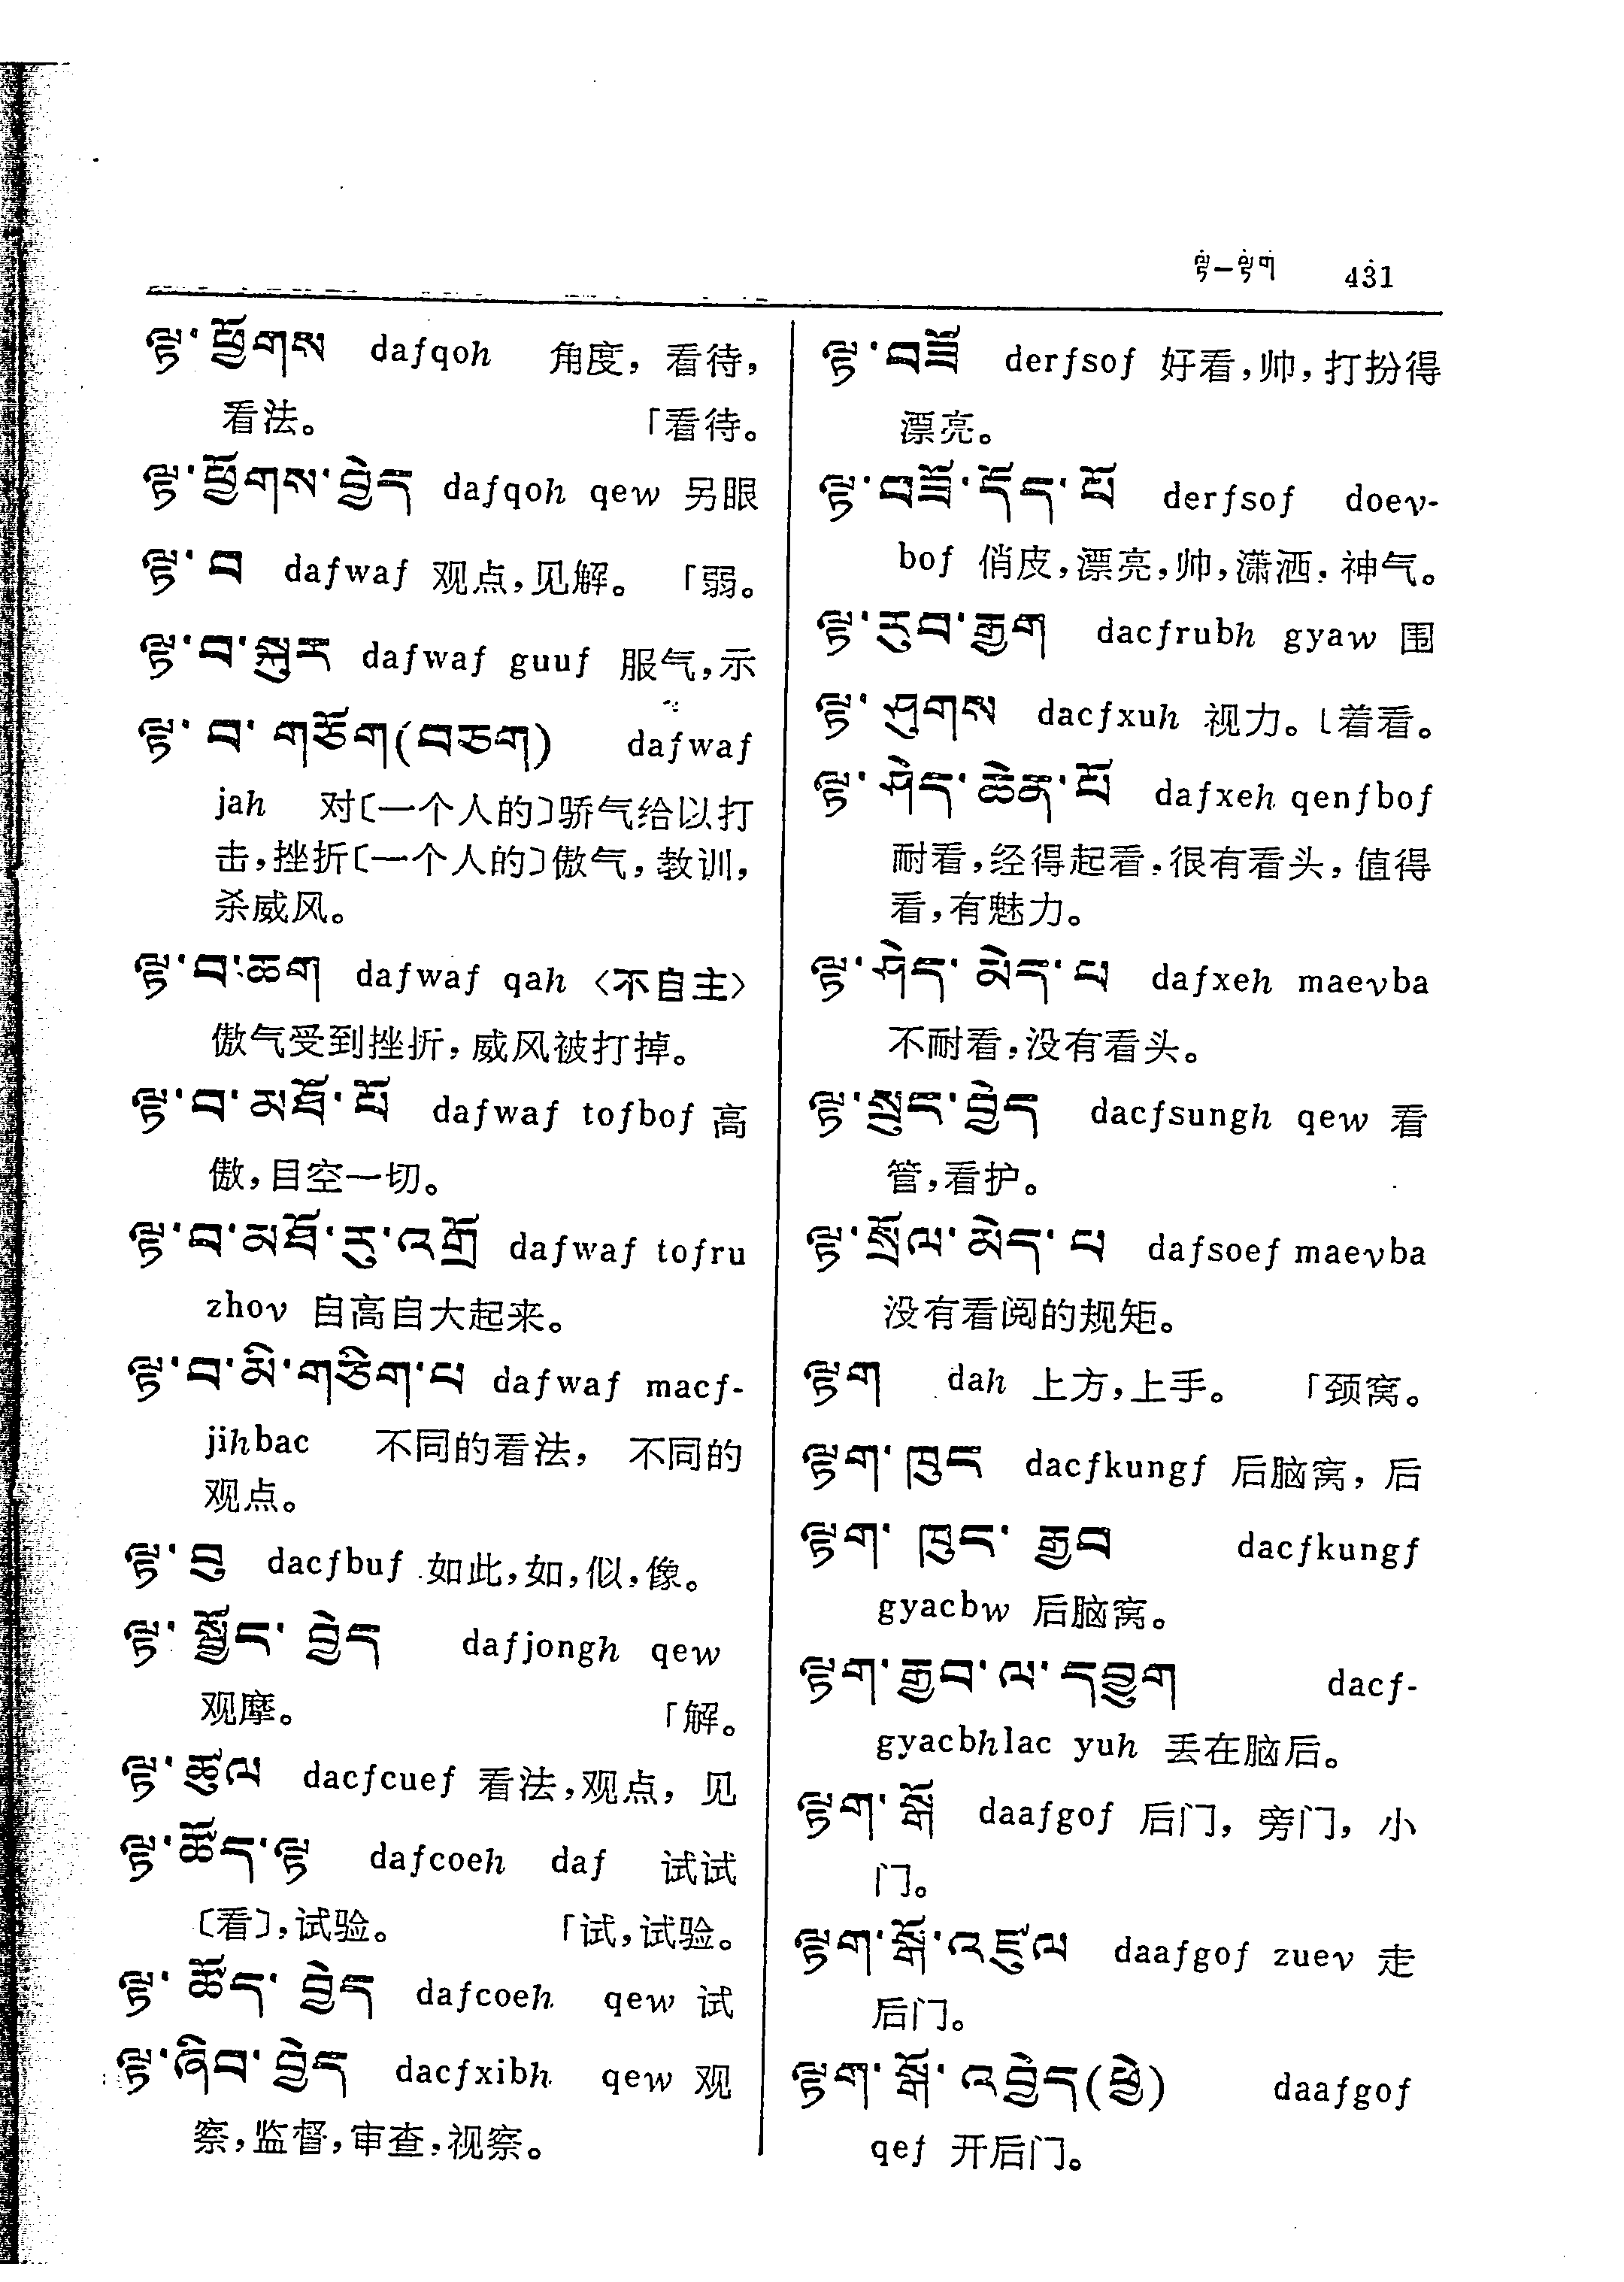 ལྟ—ལྟག 431
ལྟ་ཕྱོགས dafqoh 角度，看待，
看法。 「看待。
ལྟ་ཕྱོགས་བྱེད dafqoh qew 另眼
ལྟ་བ dafwaf 观点，见解。 「弱。
ལྟ་བ་སྐུར dafwaf guuf 服气，示
ལྟ་བ་གཅོག(བཅག) dafwaf
jah 对〔一个人的〕骄气给以打
击，挫折〔一个人的〕傲气，教训，
杀威风。
ལྟ་བ་ཆག dafwaf qah 〈不自主〉
傲气受到挫折，威风被打掉。
ལྟ་བ་མཐོ་པོ dafwaf tofbof 高
傲，目空一切。
ལྟ་བ་མཐོ་རུ་འགྲོ dafwaf tofru
zhov 自高自大起来。
ལྟ་བ་མི་གཅིག་པ dafwaf macf-
jihbac 不同的看法， 不同的
观点。
ལྟ་བུ dacfbuf 如此，如，似，像。
ལྟ་སྦྱོང་བྱེད dafjongh qew
观摩。 「解。
ལྟ་ཚུལ dacfcuef 看法，观点，见
ལྟ་ཚོད་ལྟ dafcoeh daf 试试
〔看〕，试验。 「试，试验。
ལྟ་ཚོད་བྱེད dafcoeh qew 试
ལྟ་ཞིབ་བྱེད dacfxibh qew 观
察，监督，审查，视察。
ལྟ་བཟོ derfsof 好看，帅，打扮得
漂亮。
ལྟ་བཟོ་དོད་པོ derfsof doev-
bof 俏皮，漂亮，帅，潇洒，神气。
ལྟ་རུབ་རྒྱག dacfrubh gyaw 围
ལྟ་ཤུགས dacfxuh 视力。 ⌊着看。
ལྟ་ཤེད་ཆེན་པོ dafxeh qenfbof
耐看，经得起看，很有看头，值得
看，有魅力。
ལྟ་ཤེད་མེད་པ dafxeh maevba
不耐看，没有看头。
ལྟ་སྲུང་བྱེད dacfsungh qew 看
管，看护。
ལྟ་སྲོལ་མེད་པ dafsoef maevba
没有看阅的规矩。
ལྟག dah 上方，上手。 「颈窝。
ལྟག་ཁུང dacfkungf 后脑窝，后
ལྟག་ཁུང་རྒྱབ dacfkungf
gyacbw 后脑窝。
ལྟག་རྒྱབ་ལ་དབྱུག dacf-
gyacbhlac yuh 丢在脑后。
ལྟག་སྒོ daafgof 后门，旁门，小
门。
ལྟག་སྒོ་འཛུལ daafgof zuev 走
后门。
ལྟག་སྒོ་འབྱེད(ཕྱེ) daafgof
qef 开后门。